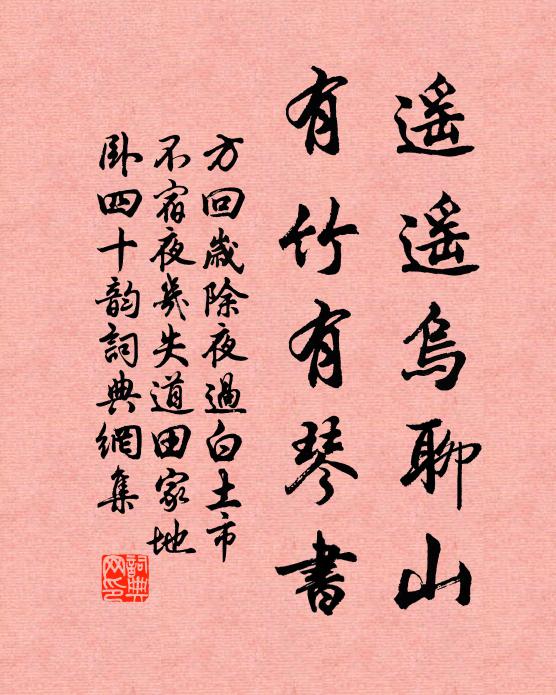 遥遥烏聊山
有竹有琴書
方回歲除夜過白土市
不宿夜幾失道田家地
卧四十韵詞典網集
詞典網印